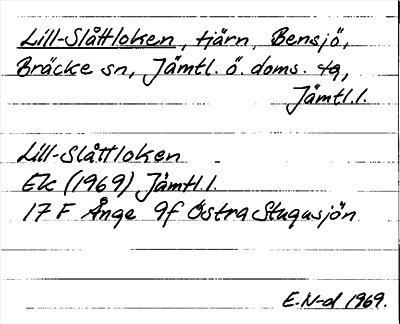 Lill-Slåttloken, tjärn, Bensjö,
Bräcke sn, Jämtl. ö. doms. tg,
Jämtl.l.
Lill-Slåttloken
Ek (1969) Jämtl.l.
17 F Ånge 9f Östra Stugusjön
E.N-d 1969.